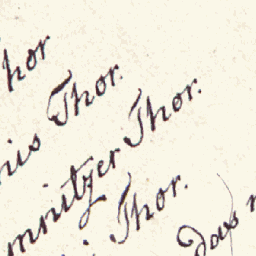 hor
nis Thor.
mnitzer Thor.
Thor.
Das